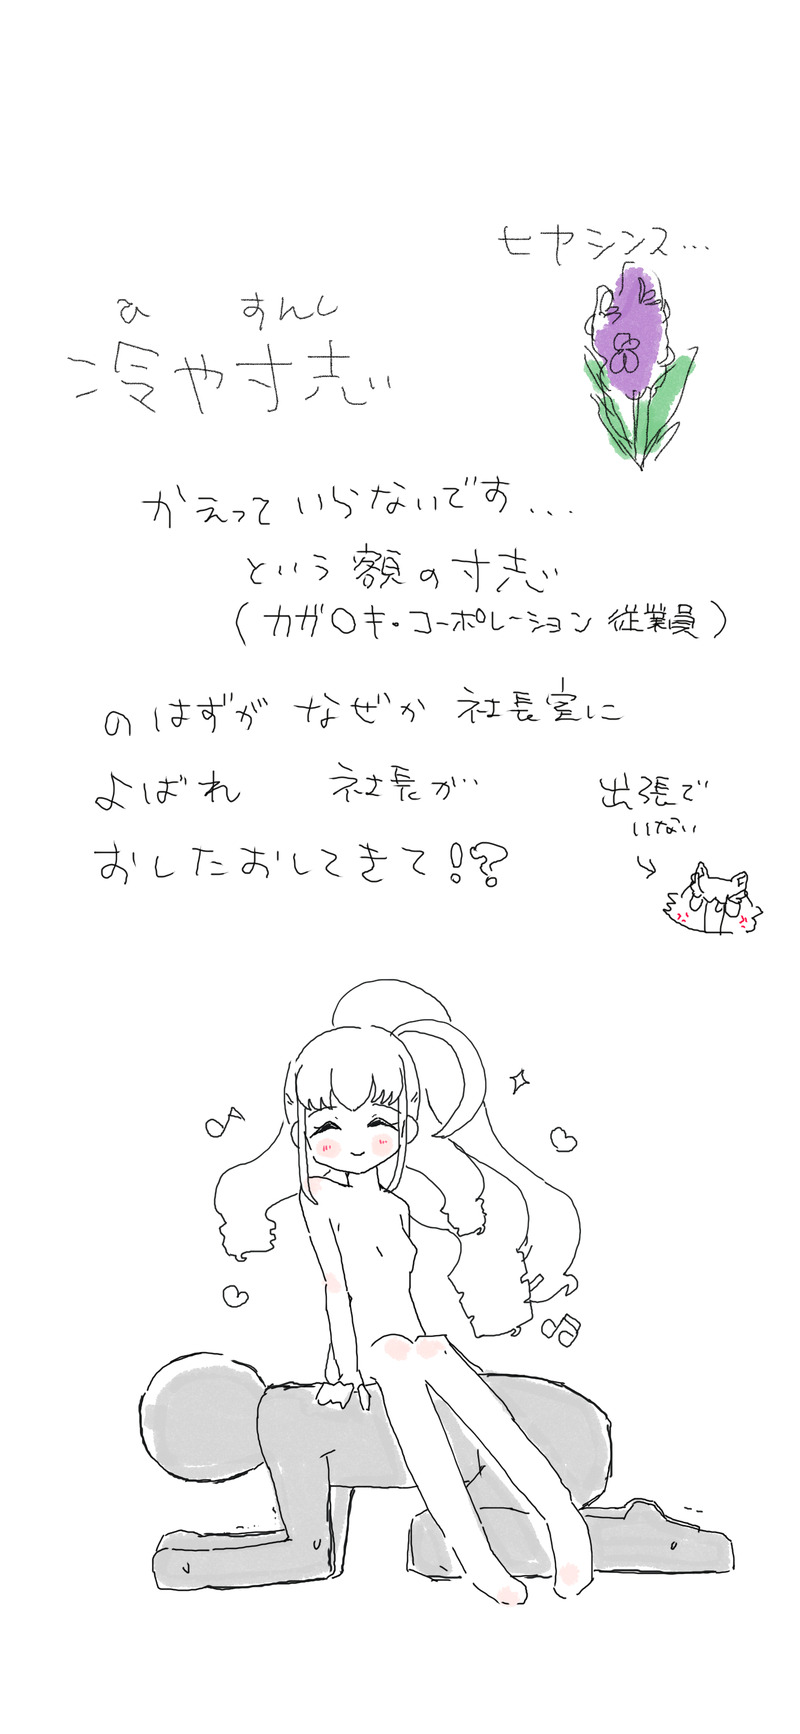 ヒヤシンス…
ひ すんし
冷や寸志…
かえっていらないです...
という額の寸志
(カガ〇キ・コーポレーション従業員)
のはずが なぜか 社長室に
よばれ 社長が…
おしたおしてきて!?
出張で
いない